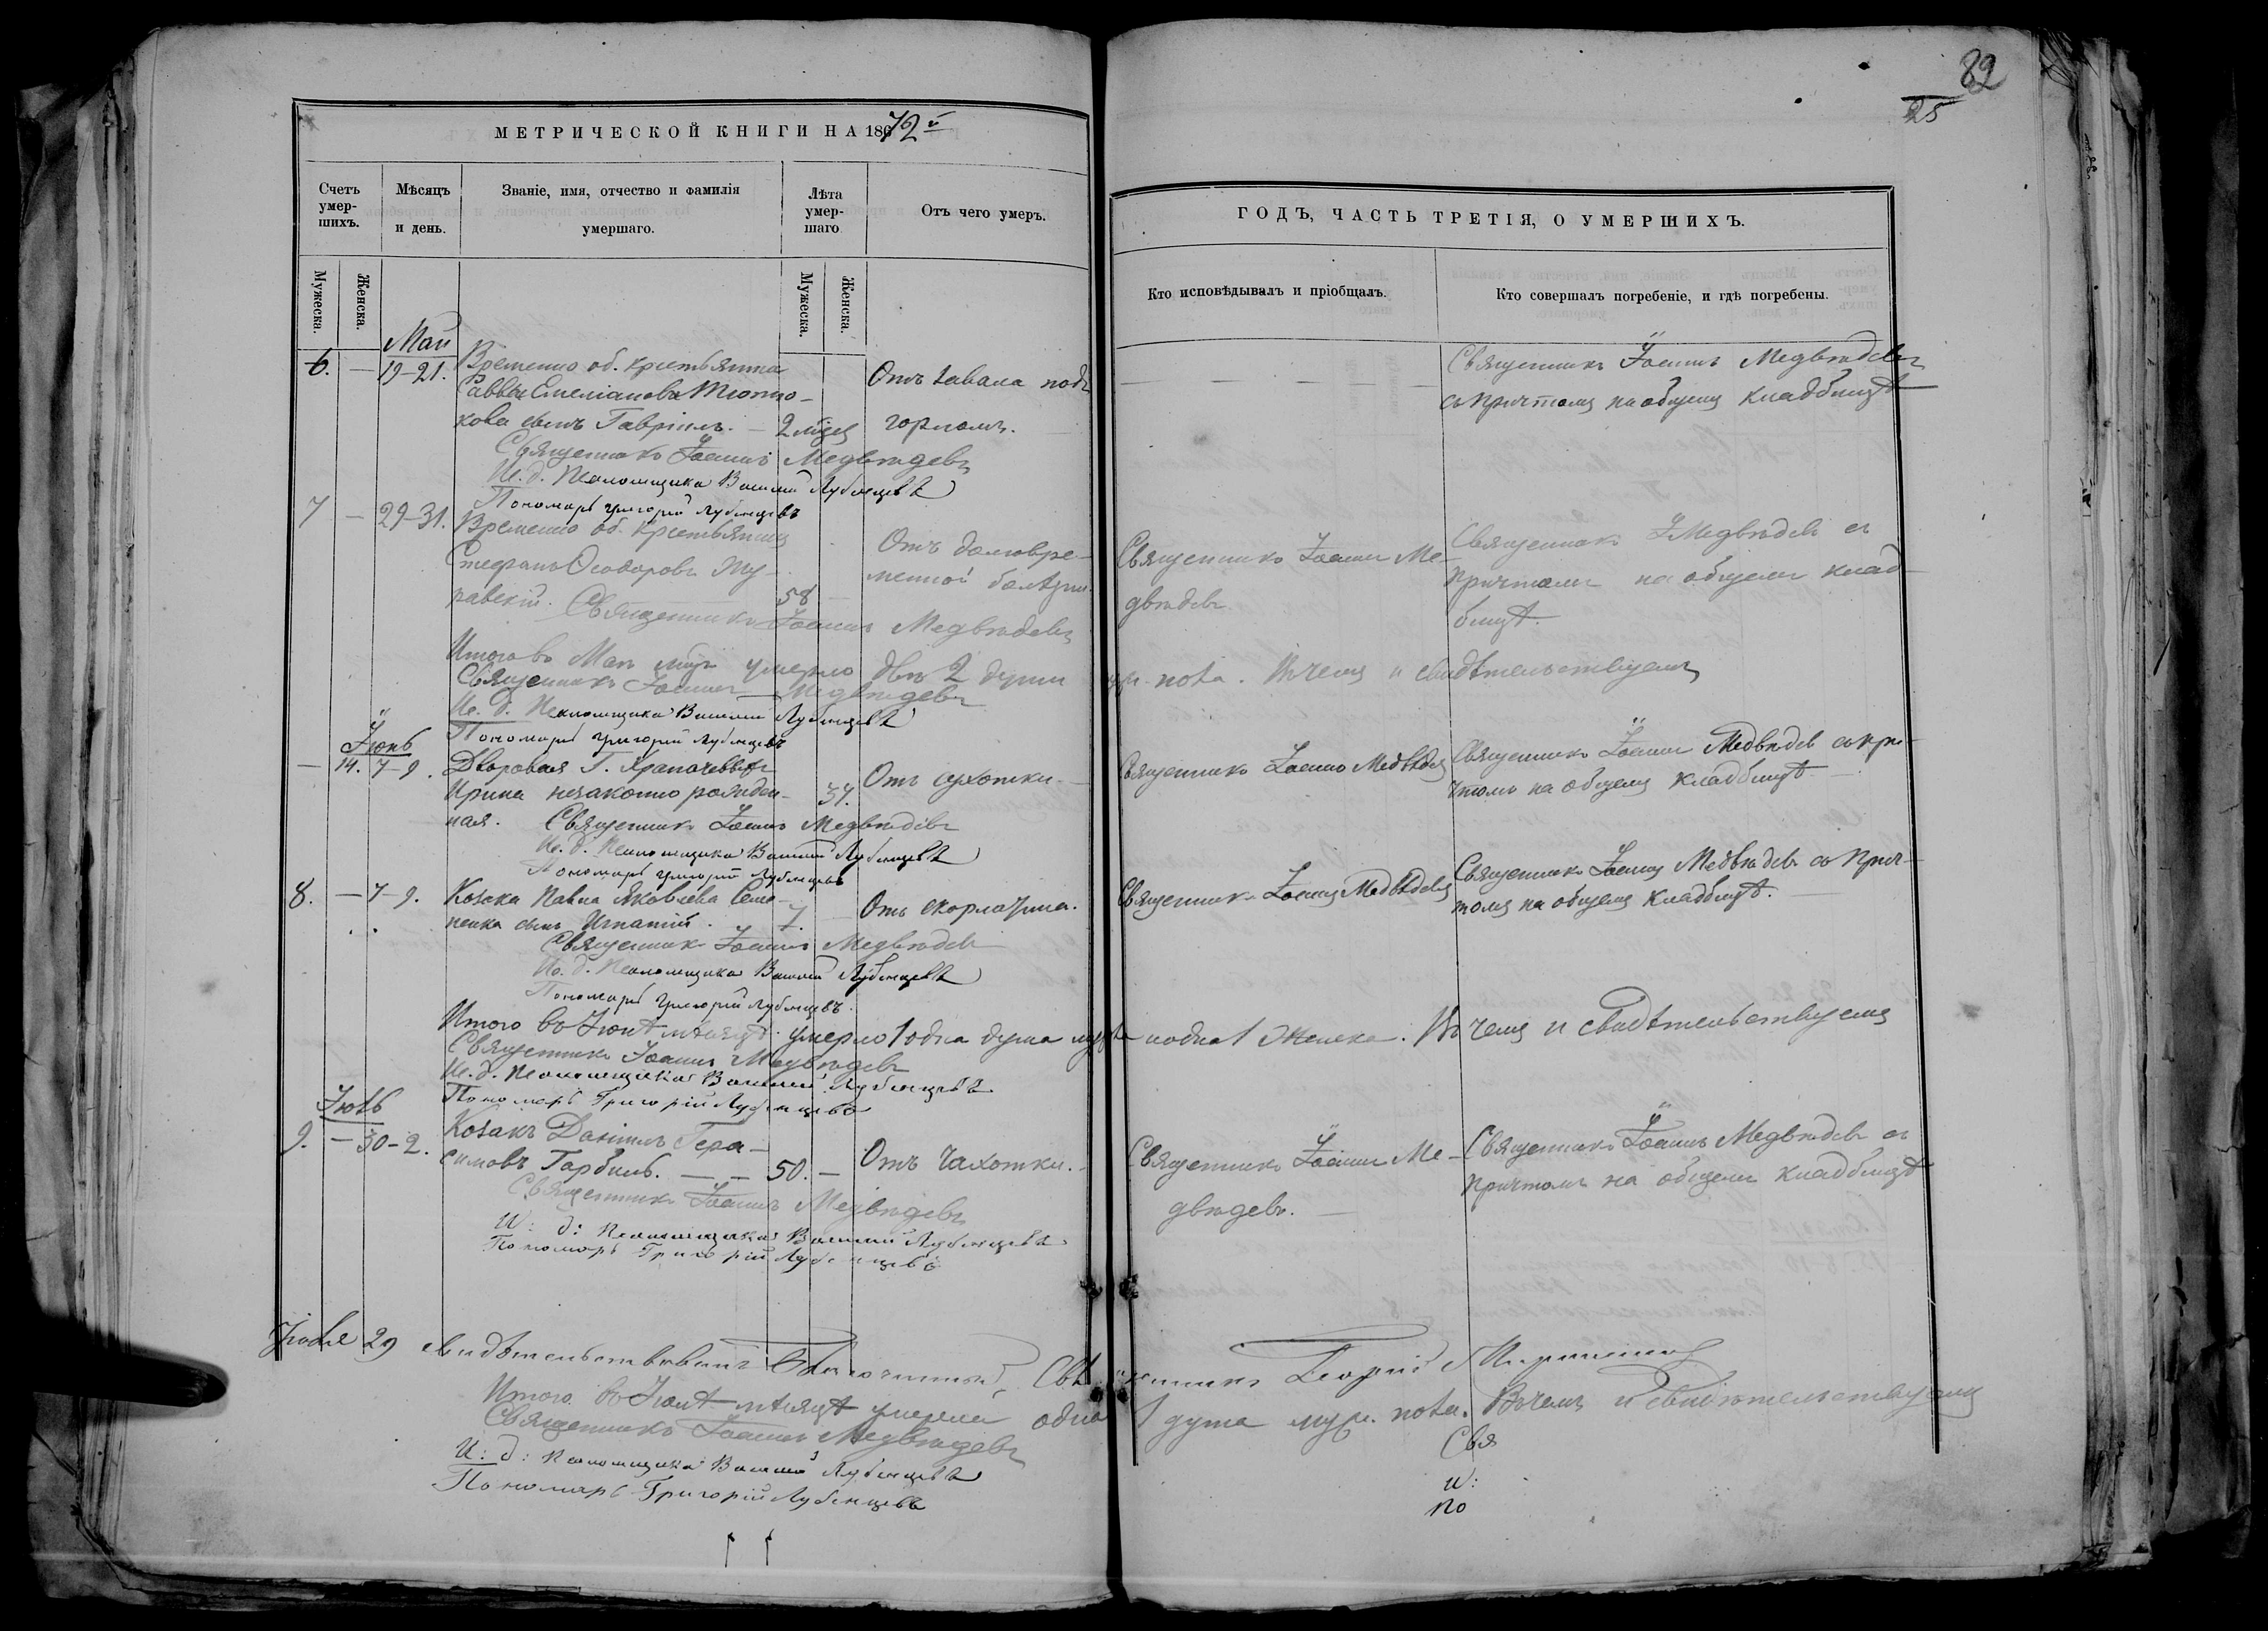 82
25
МЕТРИЧЕСКОЙ КНИГИ НА 1872й
ГОДЪ, ЧАСТЬ ТРЕТІЯ, О УМЕРШИХЪ.
Счетъ умер-шихъ.
Мѣсяцъ и день.
Званіе, имя, отчество и фамилія умершаго.
Лѣта умер-шаго
Отъ чего умеръ.
Кто исповѣдывалъ и пріобщалъ.
Кто совершалъ погребеніе, и гдѣ погребены.
Мужеска.
Женска.
Мужеска.
Женска.
Май
6. — 19-21. Временно об. крестьянина
Саввы Емеліанова
кова сынъ Гавріилъ. — 2 мѣц
Отъ завала подъ
горломъ.
Священникъ Іоаннъ Медвѣдевъ
съ причтомъ на общемъ кладбищѣ
Священникъ Іоаннъ Медвѣдевъ
И. д. Псаломщика Василій Лубенцевъ
Пономарь Григорій Лубенцевъ
7 — 29-31. Временно об. крестьянинъ
Стефанъ Ѳеодоровъ Жу-
равскій. 58
Отъ долговре-
менной болѣзни.
Священникъ Іоаннъ Ме-
двѣдевъ
Священникъ І Медвѣдевъ съ
причтомъ на общемъ клад-
бищѣ.
Священникъ Іоаннъ Медвѣдевъ
Итого въ Маѣ мѣцѣ умерло двѣ 2 души муж. пола. Въ чемъ и свидѣтельствуемъ
Священникъ Іоаннъ Медвѣдевъ
И. д. Псаломщика Василій Лубенцевъ
Пономарь Григорій Лубенцевъ
Іюнь
— 14. 7-9. Дворовая Г.
Ирина незаконно рожден-
ная. 37.
Отъ сухотки.
Священникъ Іоаннъ Медвѣдевъ
Священникъ Іоаннъ Медвѣдевъ съ при-
чтомъ на общемъ кладбищѣ
Священникъ Іоаннъ Медвѣдевъ
И. д. Псаломщика Василій Лубенцевъ
Пономарь Григорій Лубенцевъ
8. — 7-9. Козака Павла Яковлева Семе-
ненка сынъ Игнатій. 7.
Отъ скорлатина.
Священникъ Іоаннъ Медвѣдевъ
Священникъ Іоаннъ Медвѣдевъ съ прич-
томъ на общемъ кладбищѣ.
Священникъ Іоаннъ Медвѣдевъ
И. д. Псаломщика Василій Лубенцевъ
Пономарь Григорій Лубенцевъ.
Итого въ Іюнѣ мѣсяцѣ умерло 1 одна душа мужеска и одна 1 женска. Въ чемъ и свидѣтельствуемъ
Священникъ Іоаннъ Медвѣдевъ
И. д. Псаломщика Василій Лубенцевъ
Пономарь Григорій Лубенцевъ
Іюль
9. — 30-2. Козакъ Даніилъ Гера-
симовъ Горбиль. — — 50. —
Отъ чахотки.
Священникъ Іоаннъ Ме-
двѣдевъ. —
Священникъ Іоаннъ Медвѣдевъ съ
причтомъ на общемъ кладбищѣ
Священникъ Іоаннъ Медвѣдевъ
И: д: Псаломщика Василій Лубенцевъ
Пономарь Григорій Лубенцевъ
29 свидѣтельствовалъ Благочинный, Священникъ Георгій
Итого въ Іюлѣ мѣсяцѣ умерла одна 1 душа муж. пола. Въ чемъ и свидѣтельствуемъ
Священникъ Іоаннъ Медвѣдевъ
Свя
И: д: Псаломщика Василій Лубенцевъ
И:
Пономарь Григорій Лубенцевъ
По